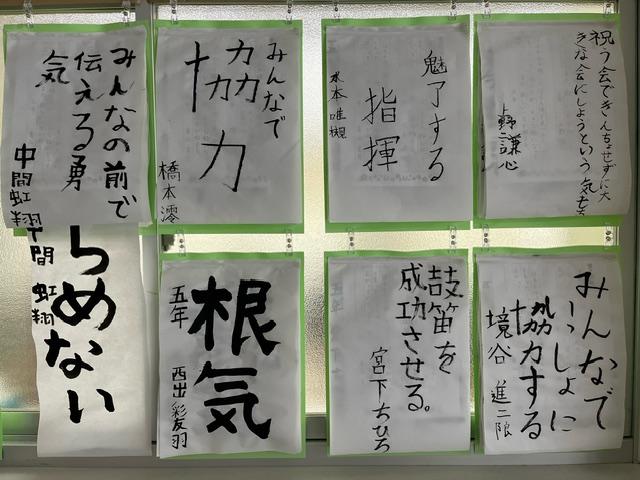 祝う会できんちょせずに大
きな会にしようという気もち
上野謙心
魅了する
指揮
水本唯楓
みんなで
協力
橋本澪
みんなの前で
伝える勇
気
中間虹翔
みんなで
いっしょに
協力する
境谷進二郎
鼓笛を
成功させる。
宮下ちひろ
根気
五年
西出彩友羽
らめない
中間虹翔